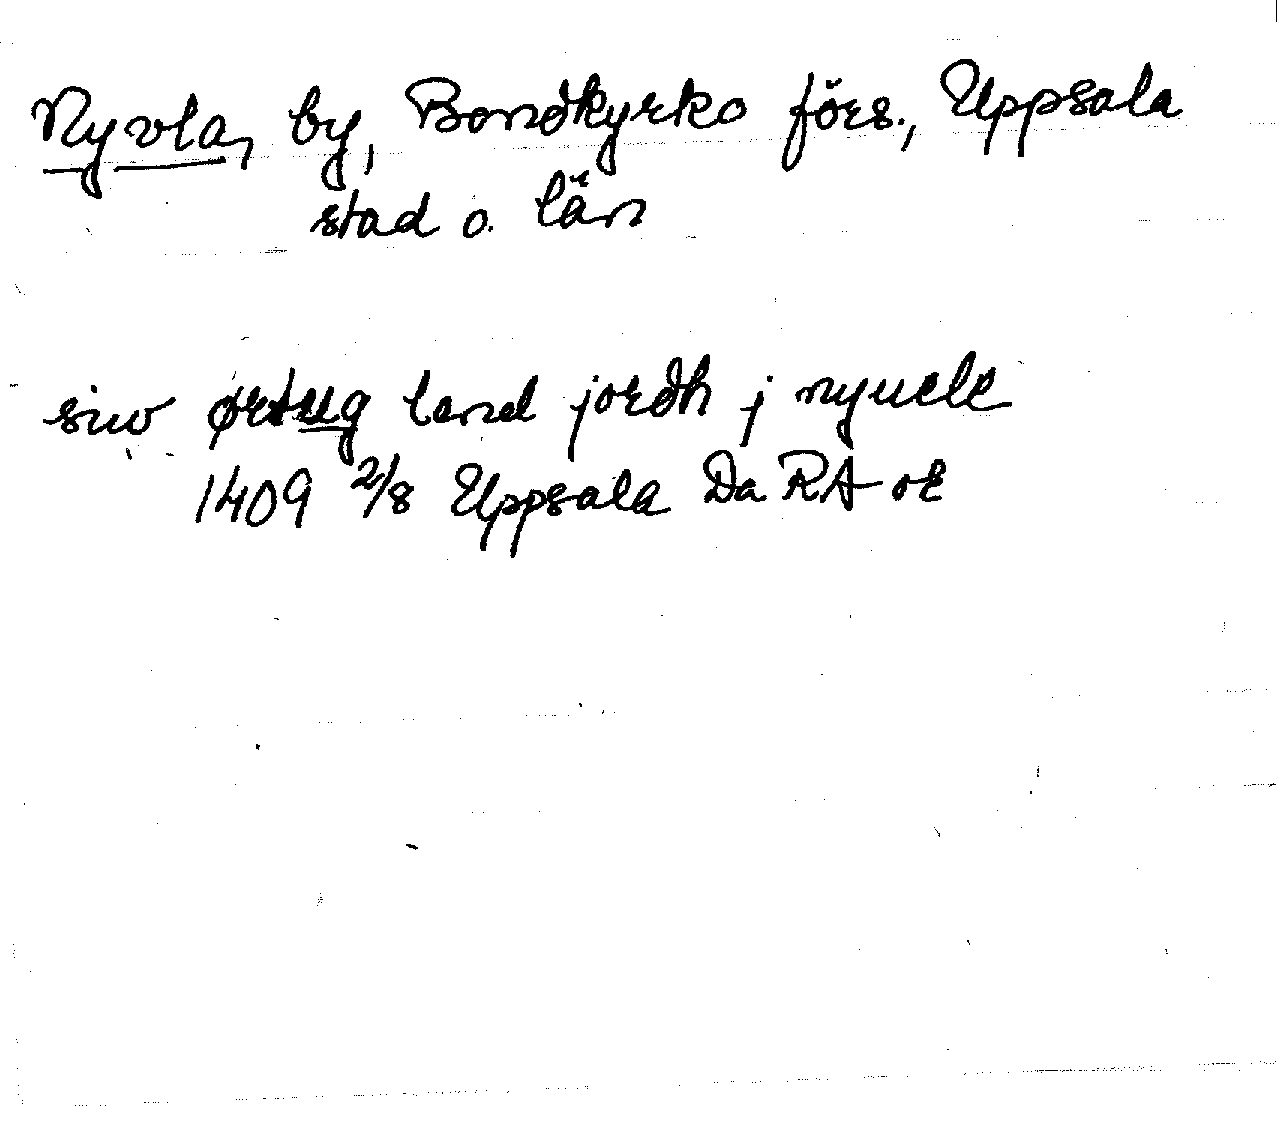 Nyvla, by, Bondkyrko förs., Uppsala
stad o. län
siw ørtug land jordh j nyuele
1409 2/8 Uppsala Da RA or